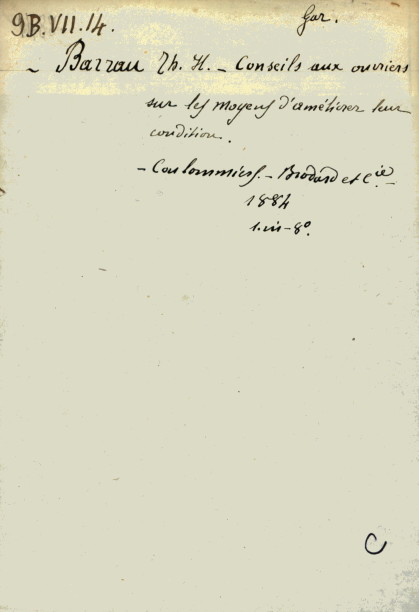 9B.VII.14.
Gar.
- Barrau Th. H. - Conseils aux ouvriers
sur les moyens d'améliorer leur
condition.
- Coulommiers. - Brodard et Cie -
1884
1. in-8°.
C